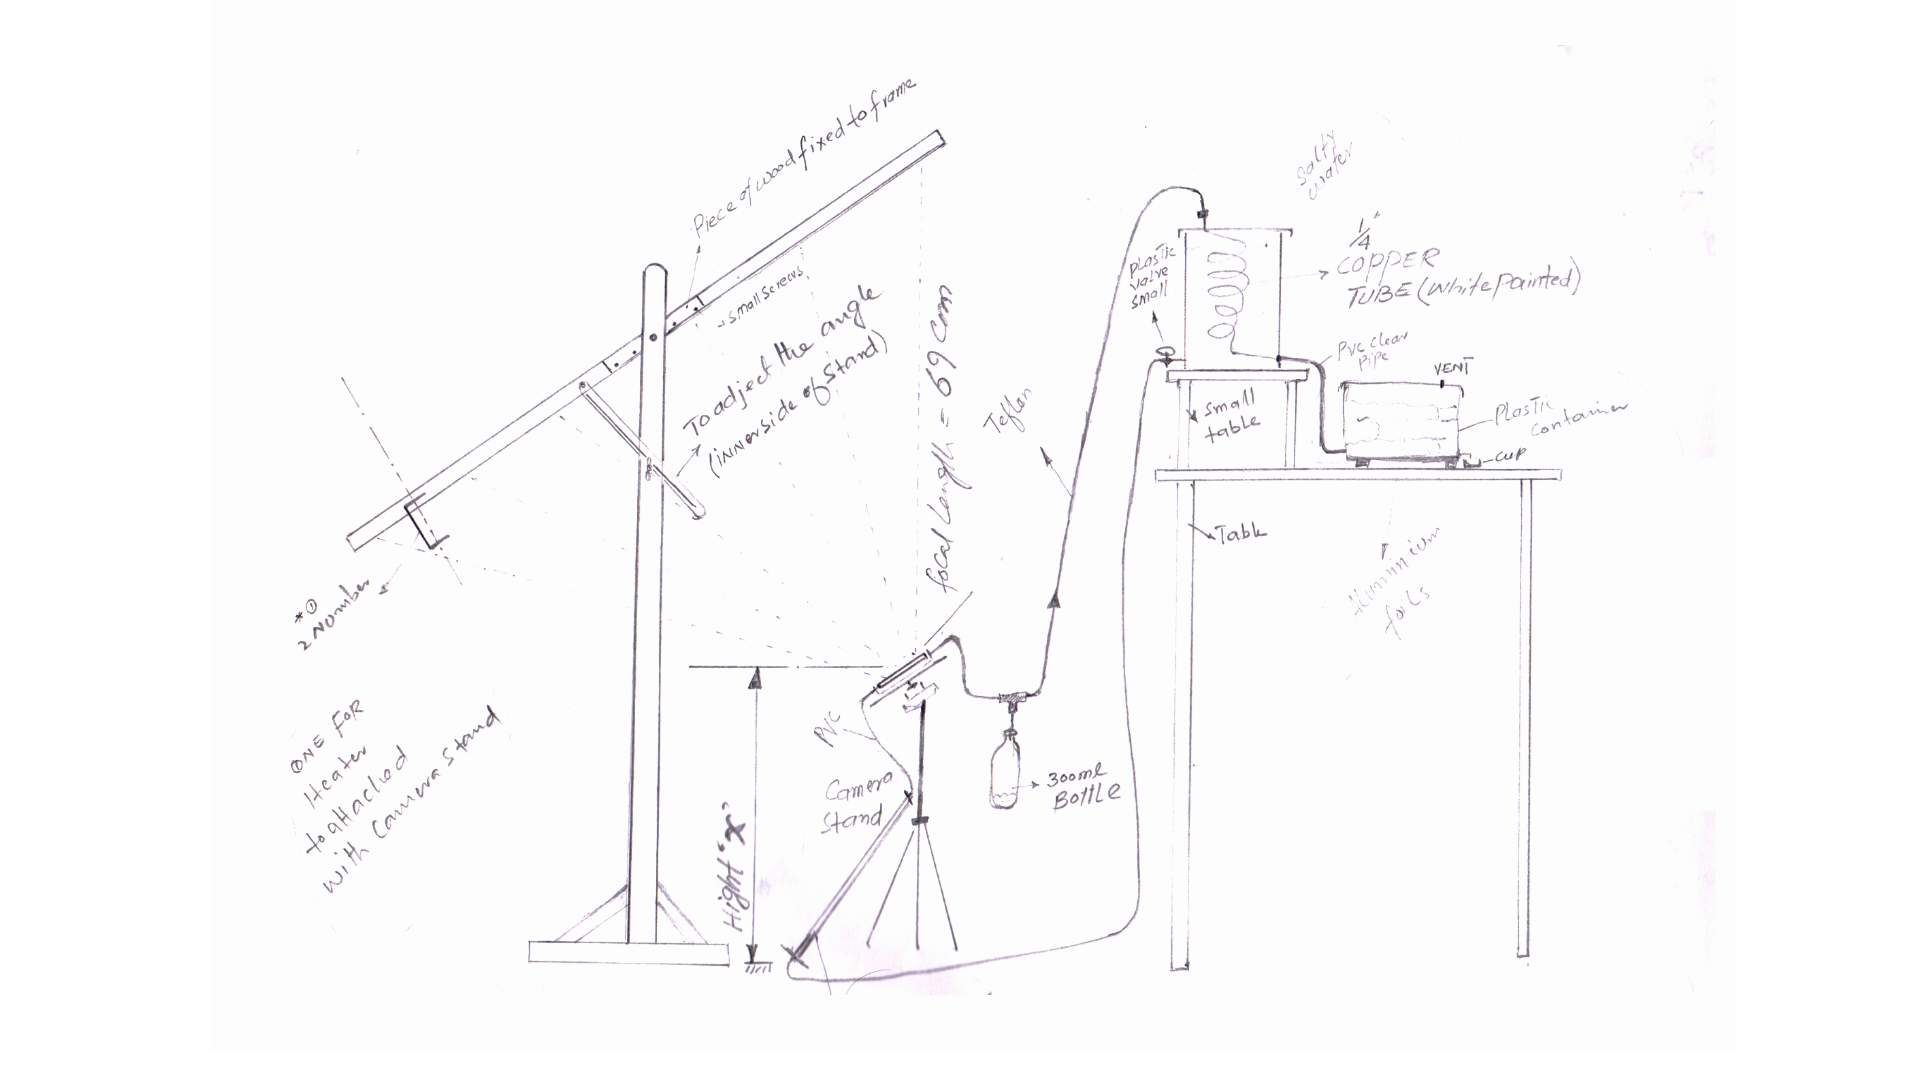 Piece of wood fixed to frame
small screws
To adject the angle
(innerside of stand)
focal Length = 69 Cm
*①
2 Number
ONE FOR
Heater
to attached
with Camera stand
Hight "X"
PVC
Camera
Stand
300ml
BOTTLE
Teflon
PLASTIC
VALVE
Small
Salty
water
1/4"
COPPER
TUBE (White painted)
PVC Clear
Pipe
VENT
PLASTIC
Container
CUP
Small
table
Table
Aluminium
foils